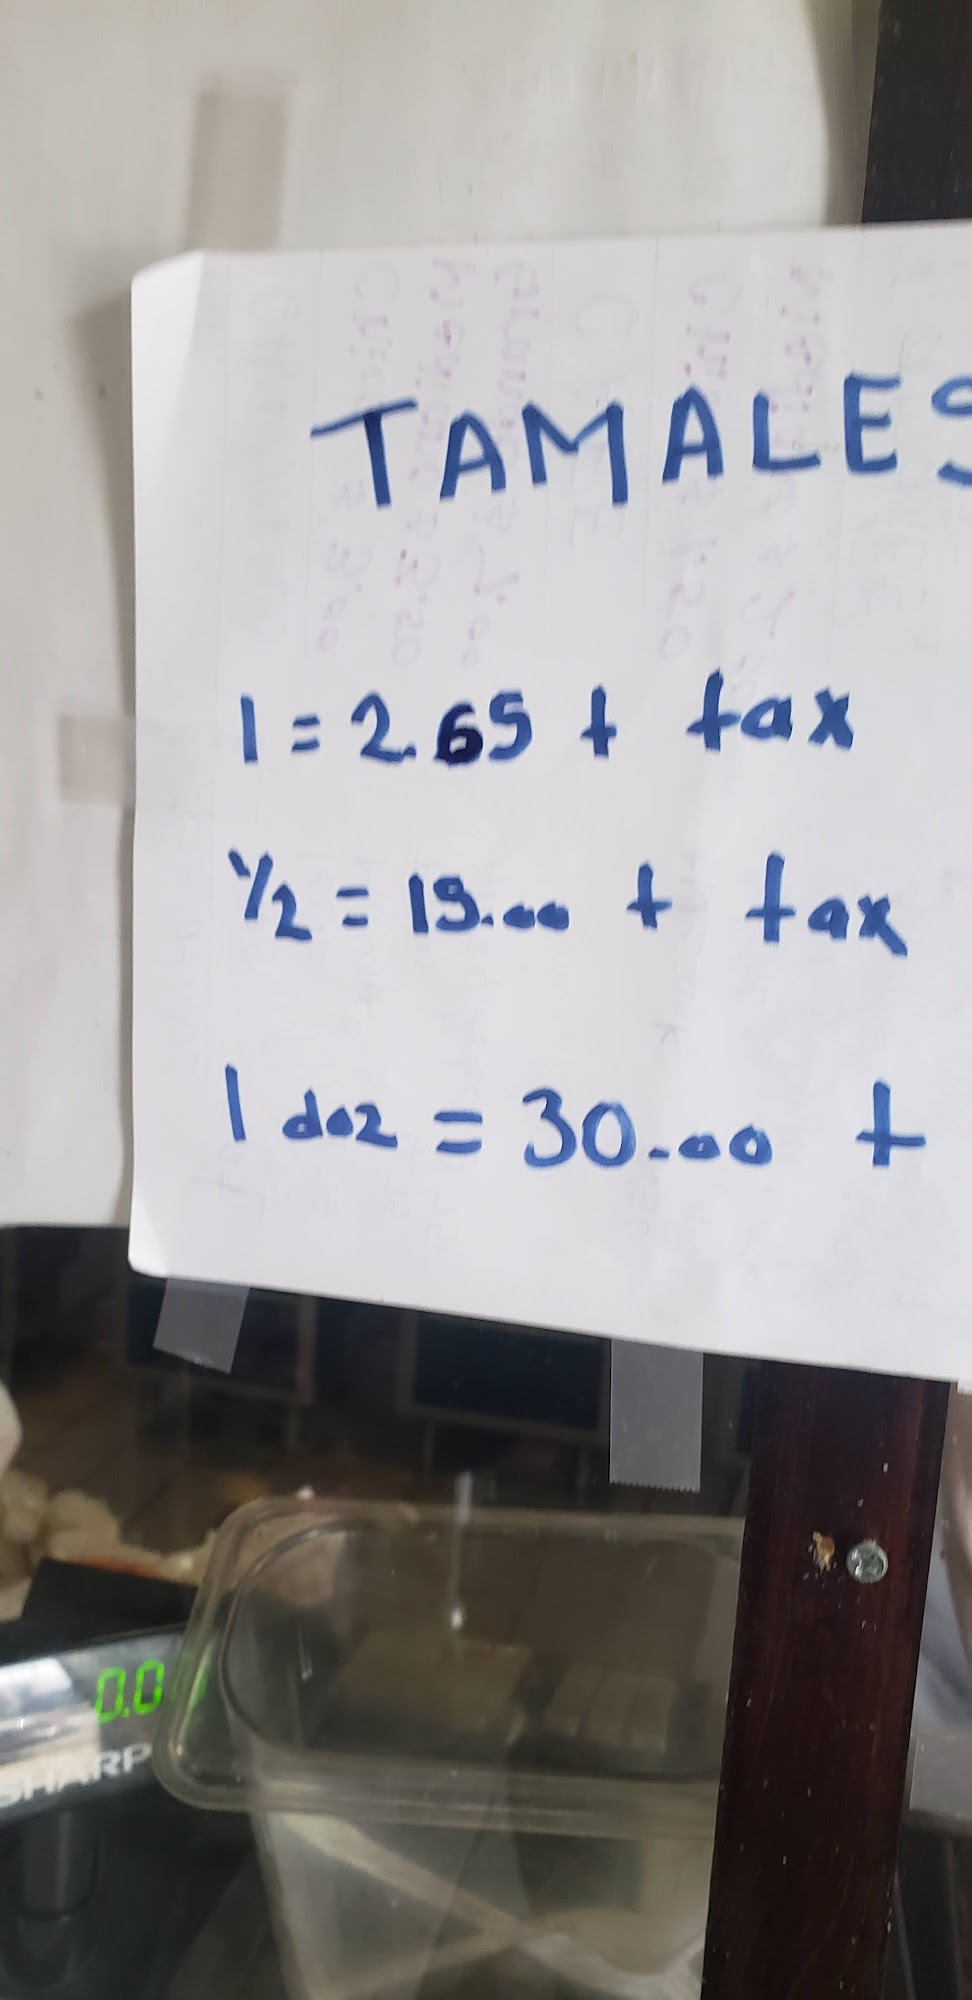 TAMALES
1 = 2.65 + tax
1/2 = 15.00 + tax
1 doz = 30.00 +
0.0
SHARP